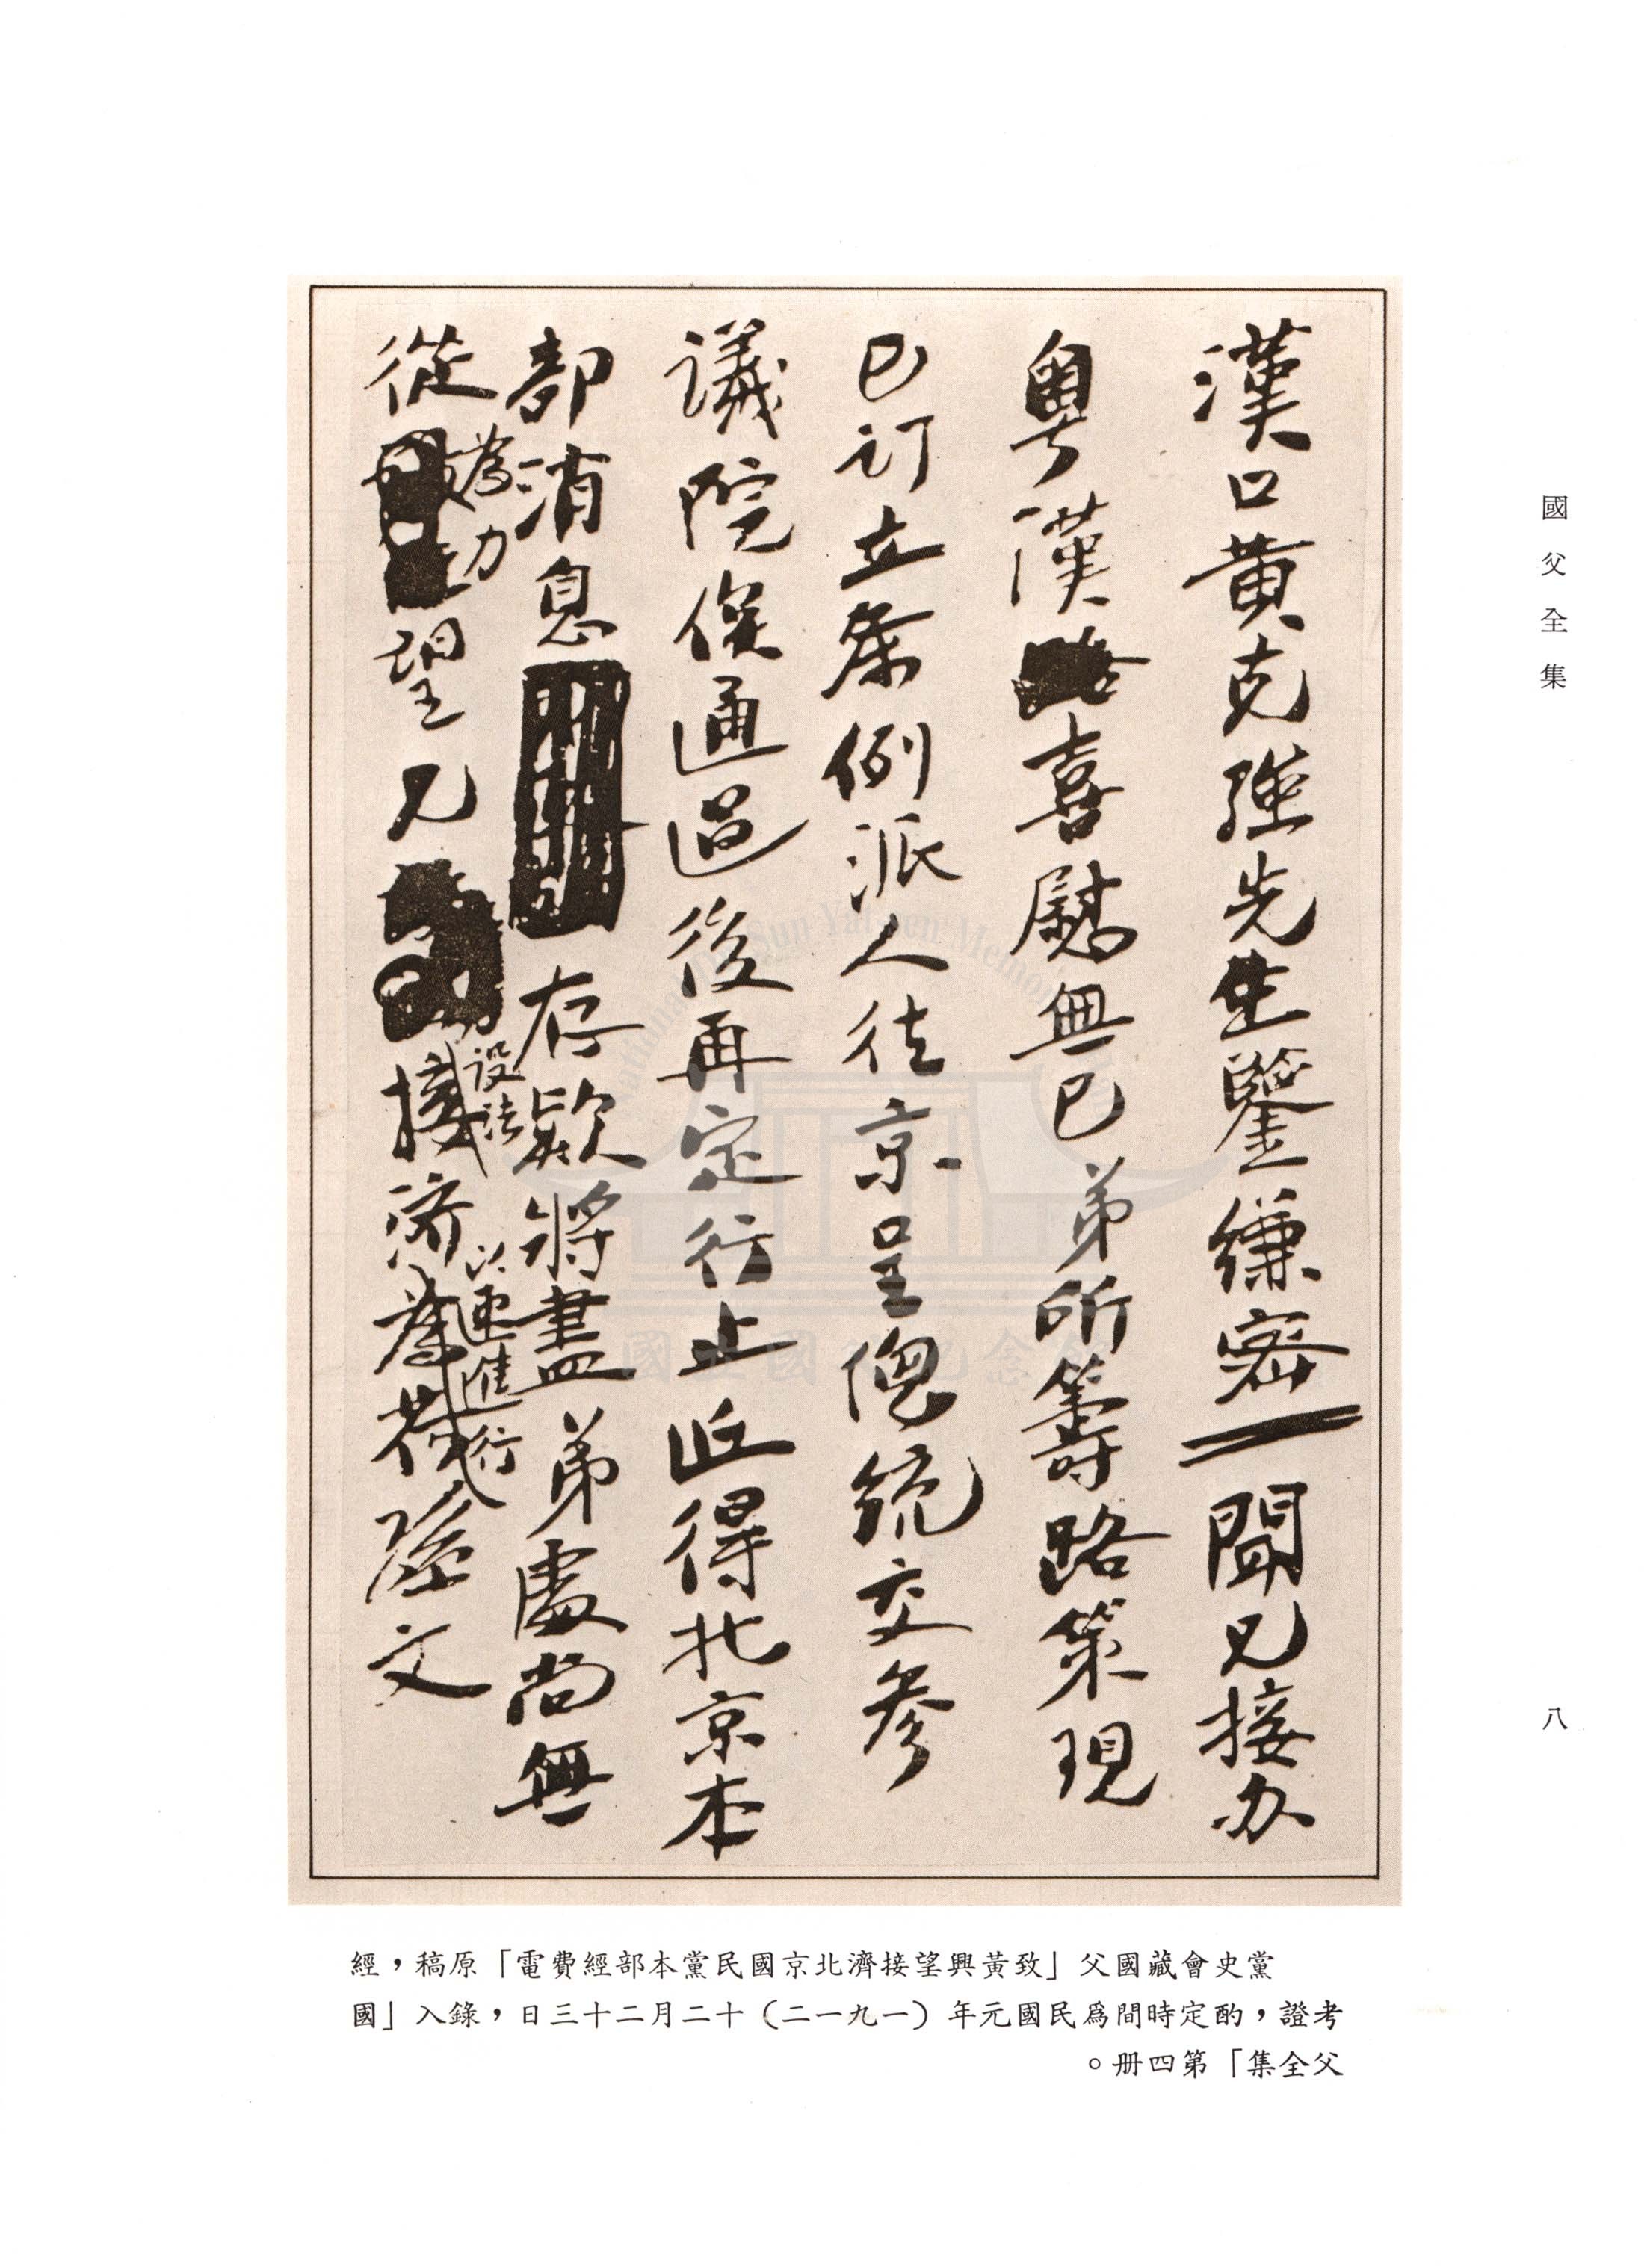 國父全集
八
漢口黃克強先生鑒縑密聞兄接办
粵漢路喜慰無已弟所籌路策現
已訂立条例派人往京呈總統交參
議院俟通過後再定行止近得北京本
部消息存款將盡弟處尚無
從為力望兄設法接濟以速進行為荷孫文
黨史會藏國父「致黃興望接濟北京國民黨本部經費電」原稿，經
考證，酌定時間爲民國元年（一九一二）十二月二十三日，錄入「國
父全集」第四冊。